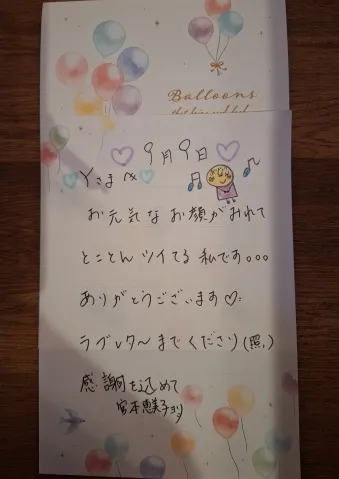 Balloons
9月9日
Yさまへ
お元気なお顔がみれて
とことんツイてる私です。。。
ありがとうございます♡
ラブレターまでください(照。)
感謝を込めて
宮本恵美子ヨリ